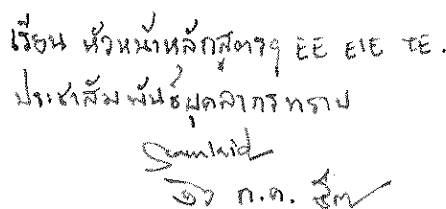 เรียน หัวหน้าหลักสูตรฯ EE EIE TE.
ประชาสัมพันธ์บุคลากรทราบ
ก.ค.